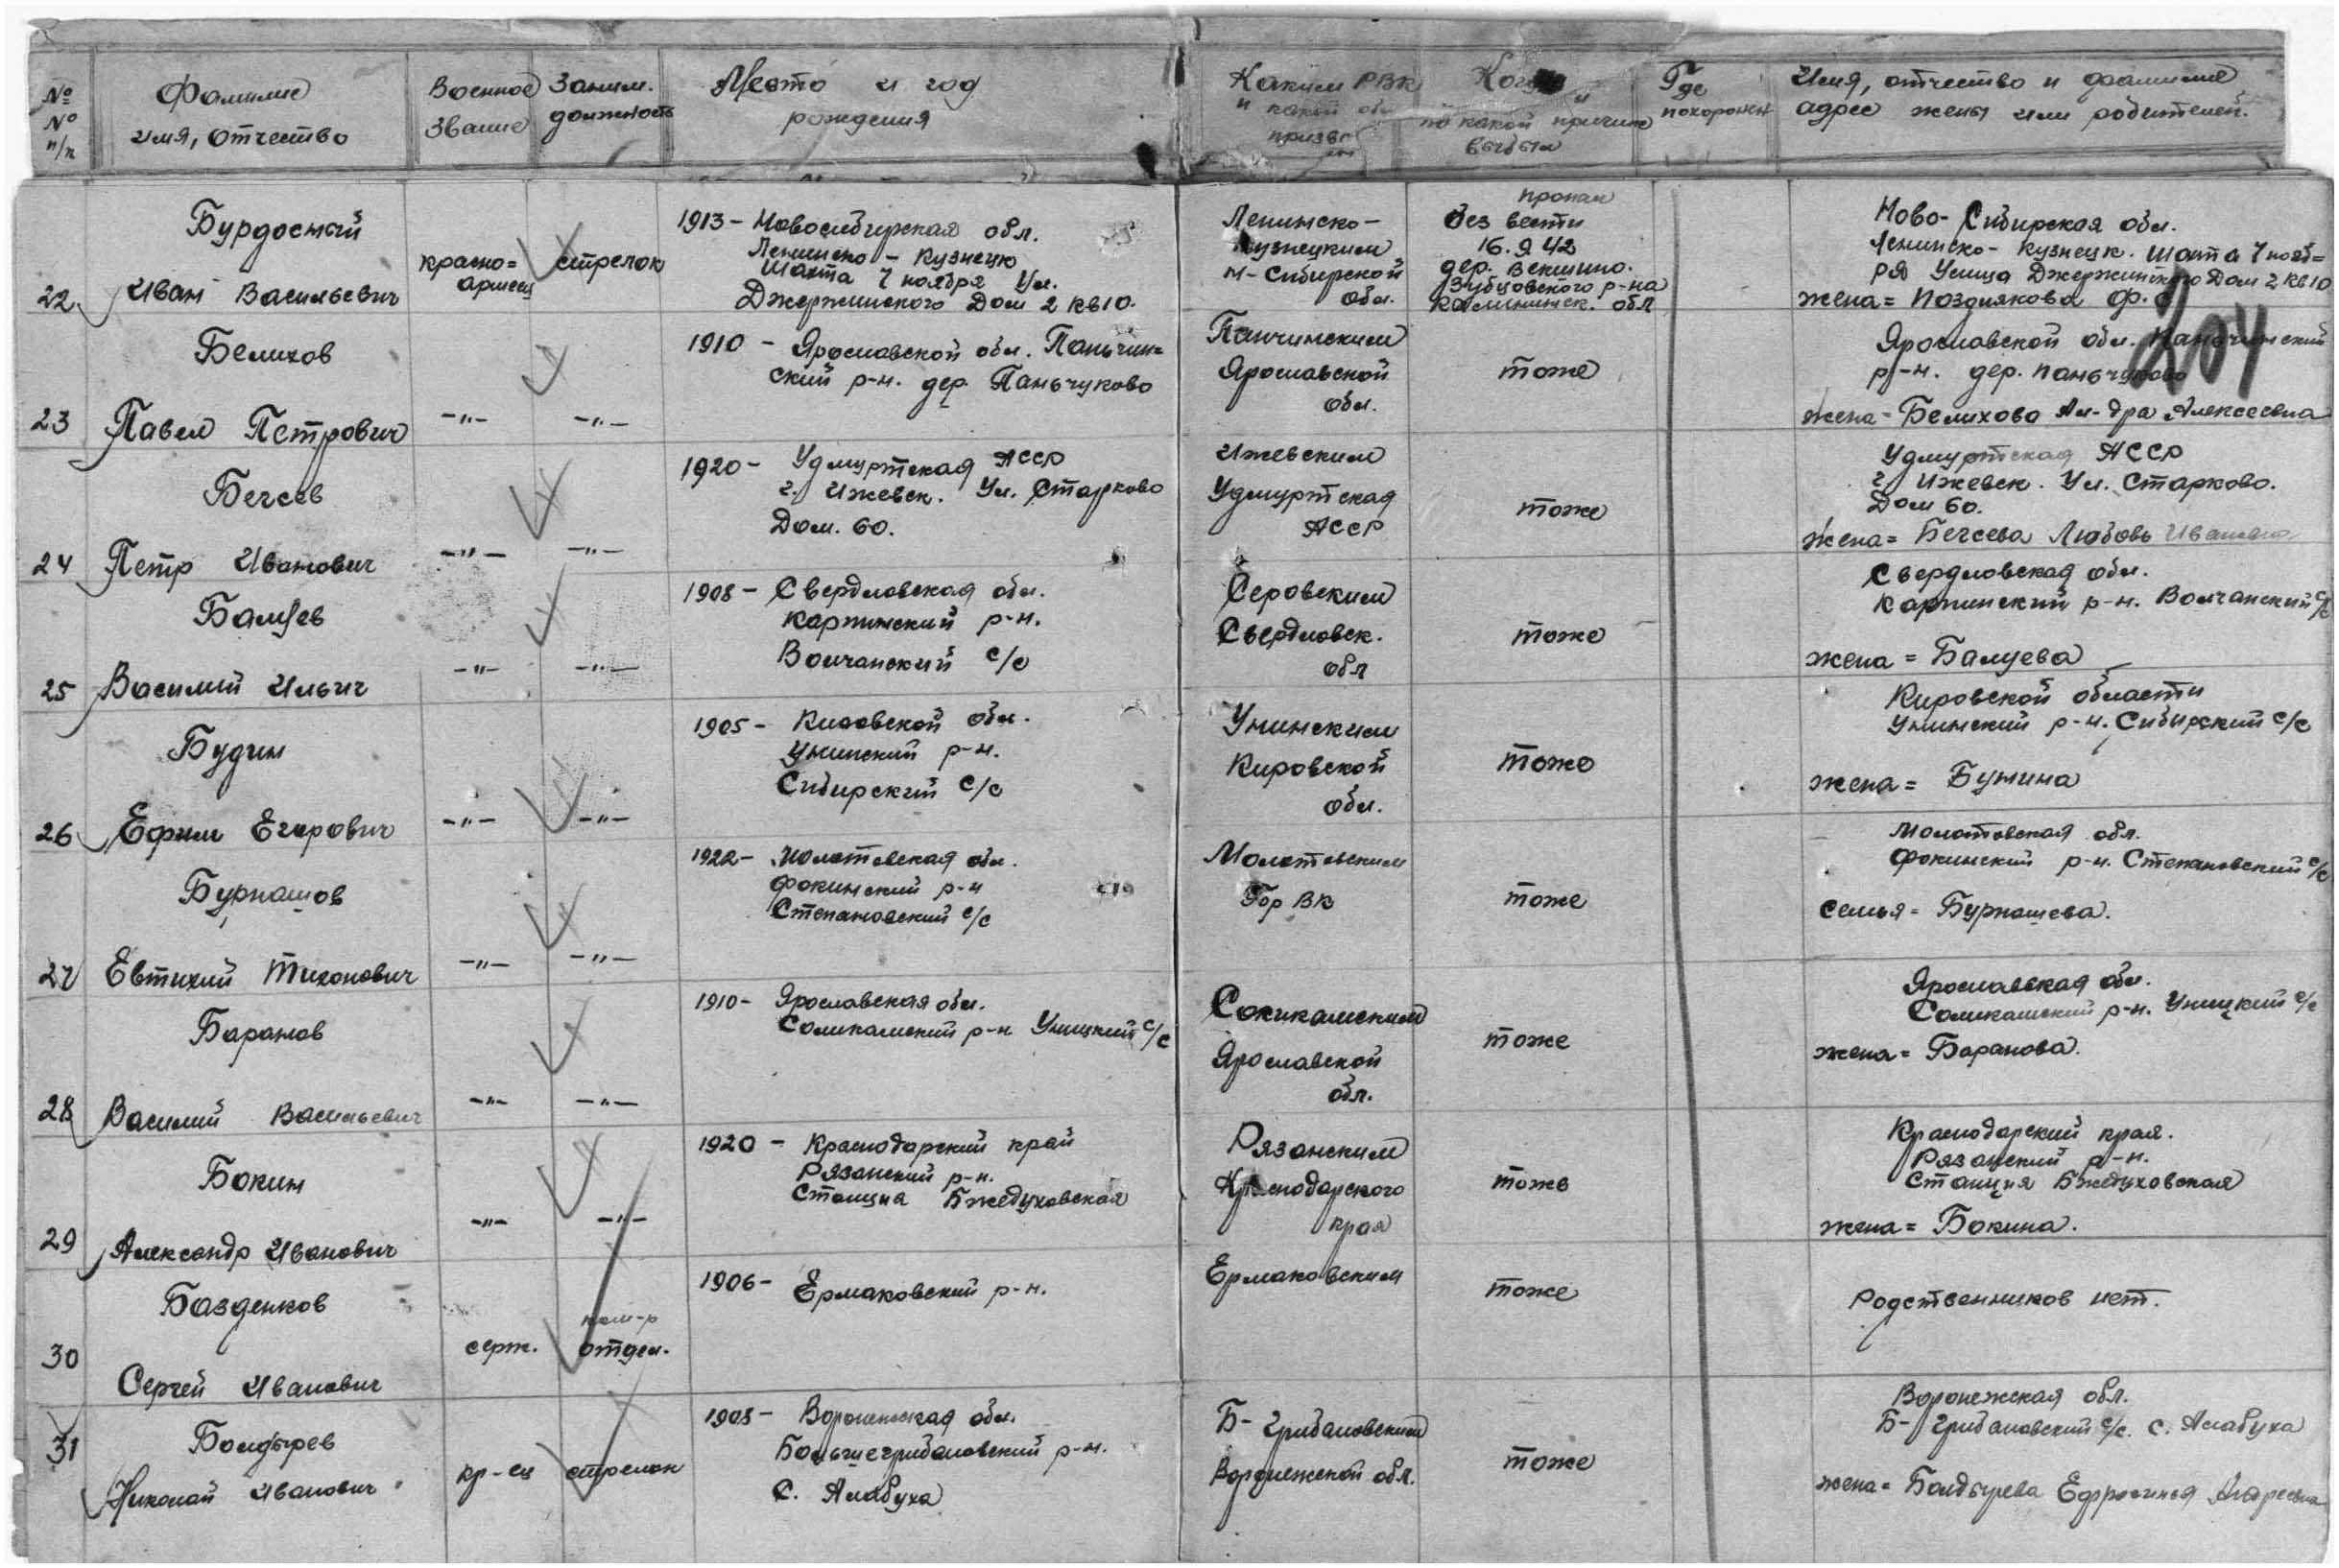 №
№
п/п
Фамилие
имя, отчество
Военное
звание
Заним.
должность
Место и год
рождения
Каким РВК
и какой об
призван
Когда и
по какой причине
выбыл
Где
похоронен
Имя, отчество и фамилие
адрес жены или родителей.
22
Бурдосный
Иван Васильевич
красно=
армеец
стрелок
1913 - Новосибирская обл.
Ленинско - Кузнецк
Шахта 7 ноября Ул.
Джержинского Дом 2 кв 10.
Ленинско-
Кузнецким
Н-Сибирской
обл.
пропал
без вести
16.9.42
дер. Векшино.
Зубцовского р-на
Калининск. обл
Ново-Сибирская обл.
Ленинско-Кузнецк. шахта 7 нояб=
ря Улица Джержинского Дом 2 кв 10
жена = Позднякова Ф.
204
23
Белихов
Павел Петрович
-"-
-"-
1910 - Ярославской обл. Паньчин=
ский р-н. дер. Паньчуково
Панчинским
Ярославской
обл.
тоже
Ярославской обл. Паньчинский
р-н. дер. Паньчуково
жена - Белихова Ал-дра Алексеевна
24
Бечсев
Петр Иванович
-"-
-"-
1920 - Удмуртская АССР
г. Ижевск. Ул. Старково
Дом. 60.
Ижевским
Удмуртская
АССР
тоже
Удмуртская АССР
г. Ижевск. Ул. Старково.
Дом 60.
жена = Бечсева Любовь Ивановна
25
Балуев
Василий Ильич
-"-
-"-
1908 - Свердловская обл.
Карпинский р-н.
Волчанский с/с
Серовским
Свердловск.
обл
тоже
Свердловская обл.
Карпинский р-н. Волчанский с/с
жена = Балуева
26
Будин
Ефим Егорович
-"-
-"-
1905 - Кировской обл.
Унинский р-н.
Сибирский с/с
Унинским
Кировской
обл.
тоже
Кировской области
Унинский р-н. Сибирский с/с
жена = Бунина
27
Бурнашов
Евтихий Тихонович
-"-
-"-
1922 - Молотовская обл.
Фокинский р-н
Степановский с/с
Молотовским
Гор ВК
тоже
Молотовская обл.
Фокинский р-н. Степановский с/с
семья = Бурнашева.
28
Баранов
Василий Васильевич
-"-
-"-
1910 - Ярославская обл.
Соликамский р-н Уницкий с/с
Сокикамским
Ярославской
обл.
тоже
Ярославская обл.
Соликамский р-н. Уницкий с/с
жена = Баранова.
29
Бокин
Александр Иванович
-"-
-"-
1920 - Краснодарский край
Рязанский р-н.
Станция Бжедуховская
Рязанским
Краснодарского
края
тоже
Краснодарский края.
Рязанский р-н.
Станция Бжедуховская
жена = Бокина.
30
Базденков
Сергей Иванович
серж.
ком-р
отдел.
1906 - Ермаковский р-н.
Ермаковским
тоже
Родственников нет.
31
Болдырев
Николай Иванович
кр-ец
стрелок
1908 - Воронежская обл.
Большегрибановский р-н.
С. Алабуха
Б-Грибановским
Воронежской обл.
тоже
Воронежская обл.
Б-Грибановский с/с. с. Алабуха
жена = Болдырева Ефросинья Андреевна